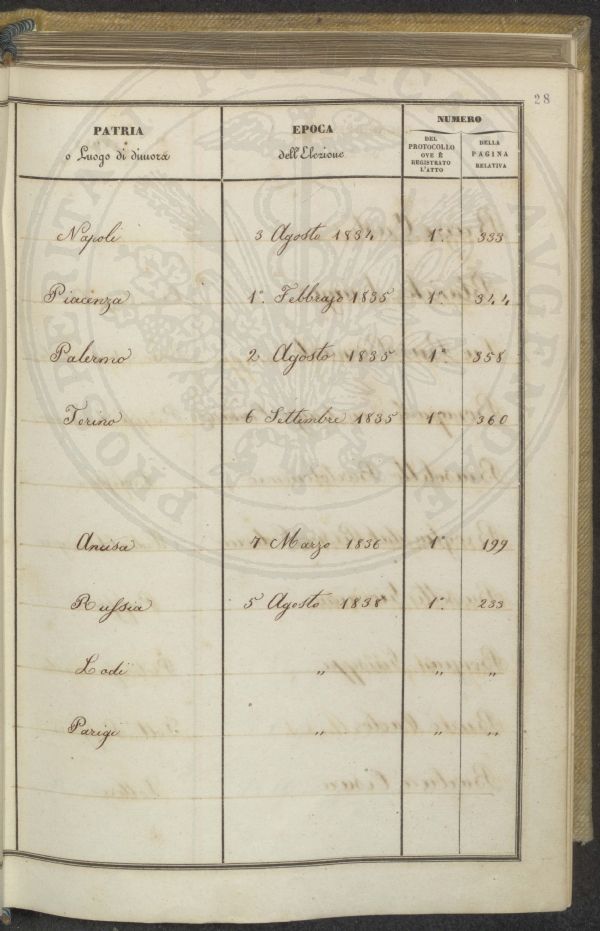 28
PATRIA
o Luogo di dimora
EPOCA
dell'Elezione
NUMERO
DEL
PROTOCOLLO
OVE È
REGISTRATO
L'ATTO
DELLA
PAGINA
RELATIVA
Napoli 3 Agosto 1834 1°. 333
Piacenza 1°. Febbrajo 1835 1° 344
Palermo 2 Agosto 1835 1° 358
Torino 6 Settembre 1835 1° 360
Ancisa 7 Marzo 1836 1° 199
Russia 5 Agosto 1838 1°. 233
Lodi " " "
Parigi " " "